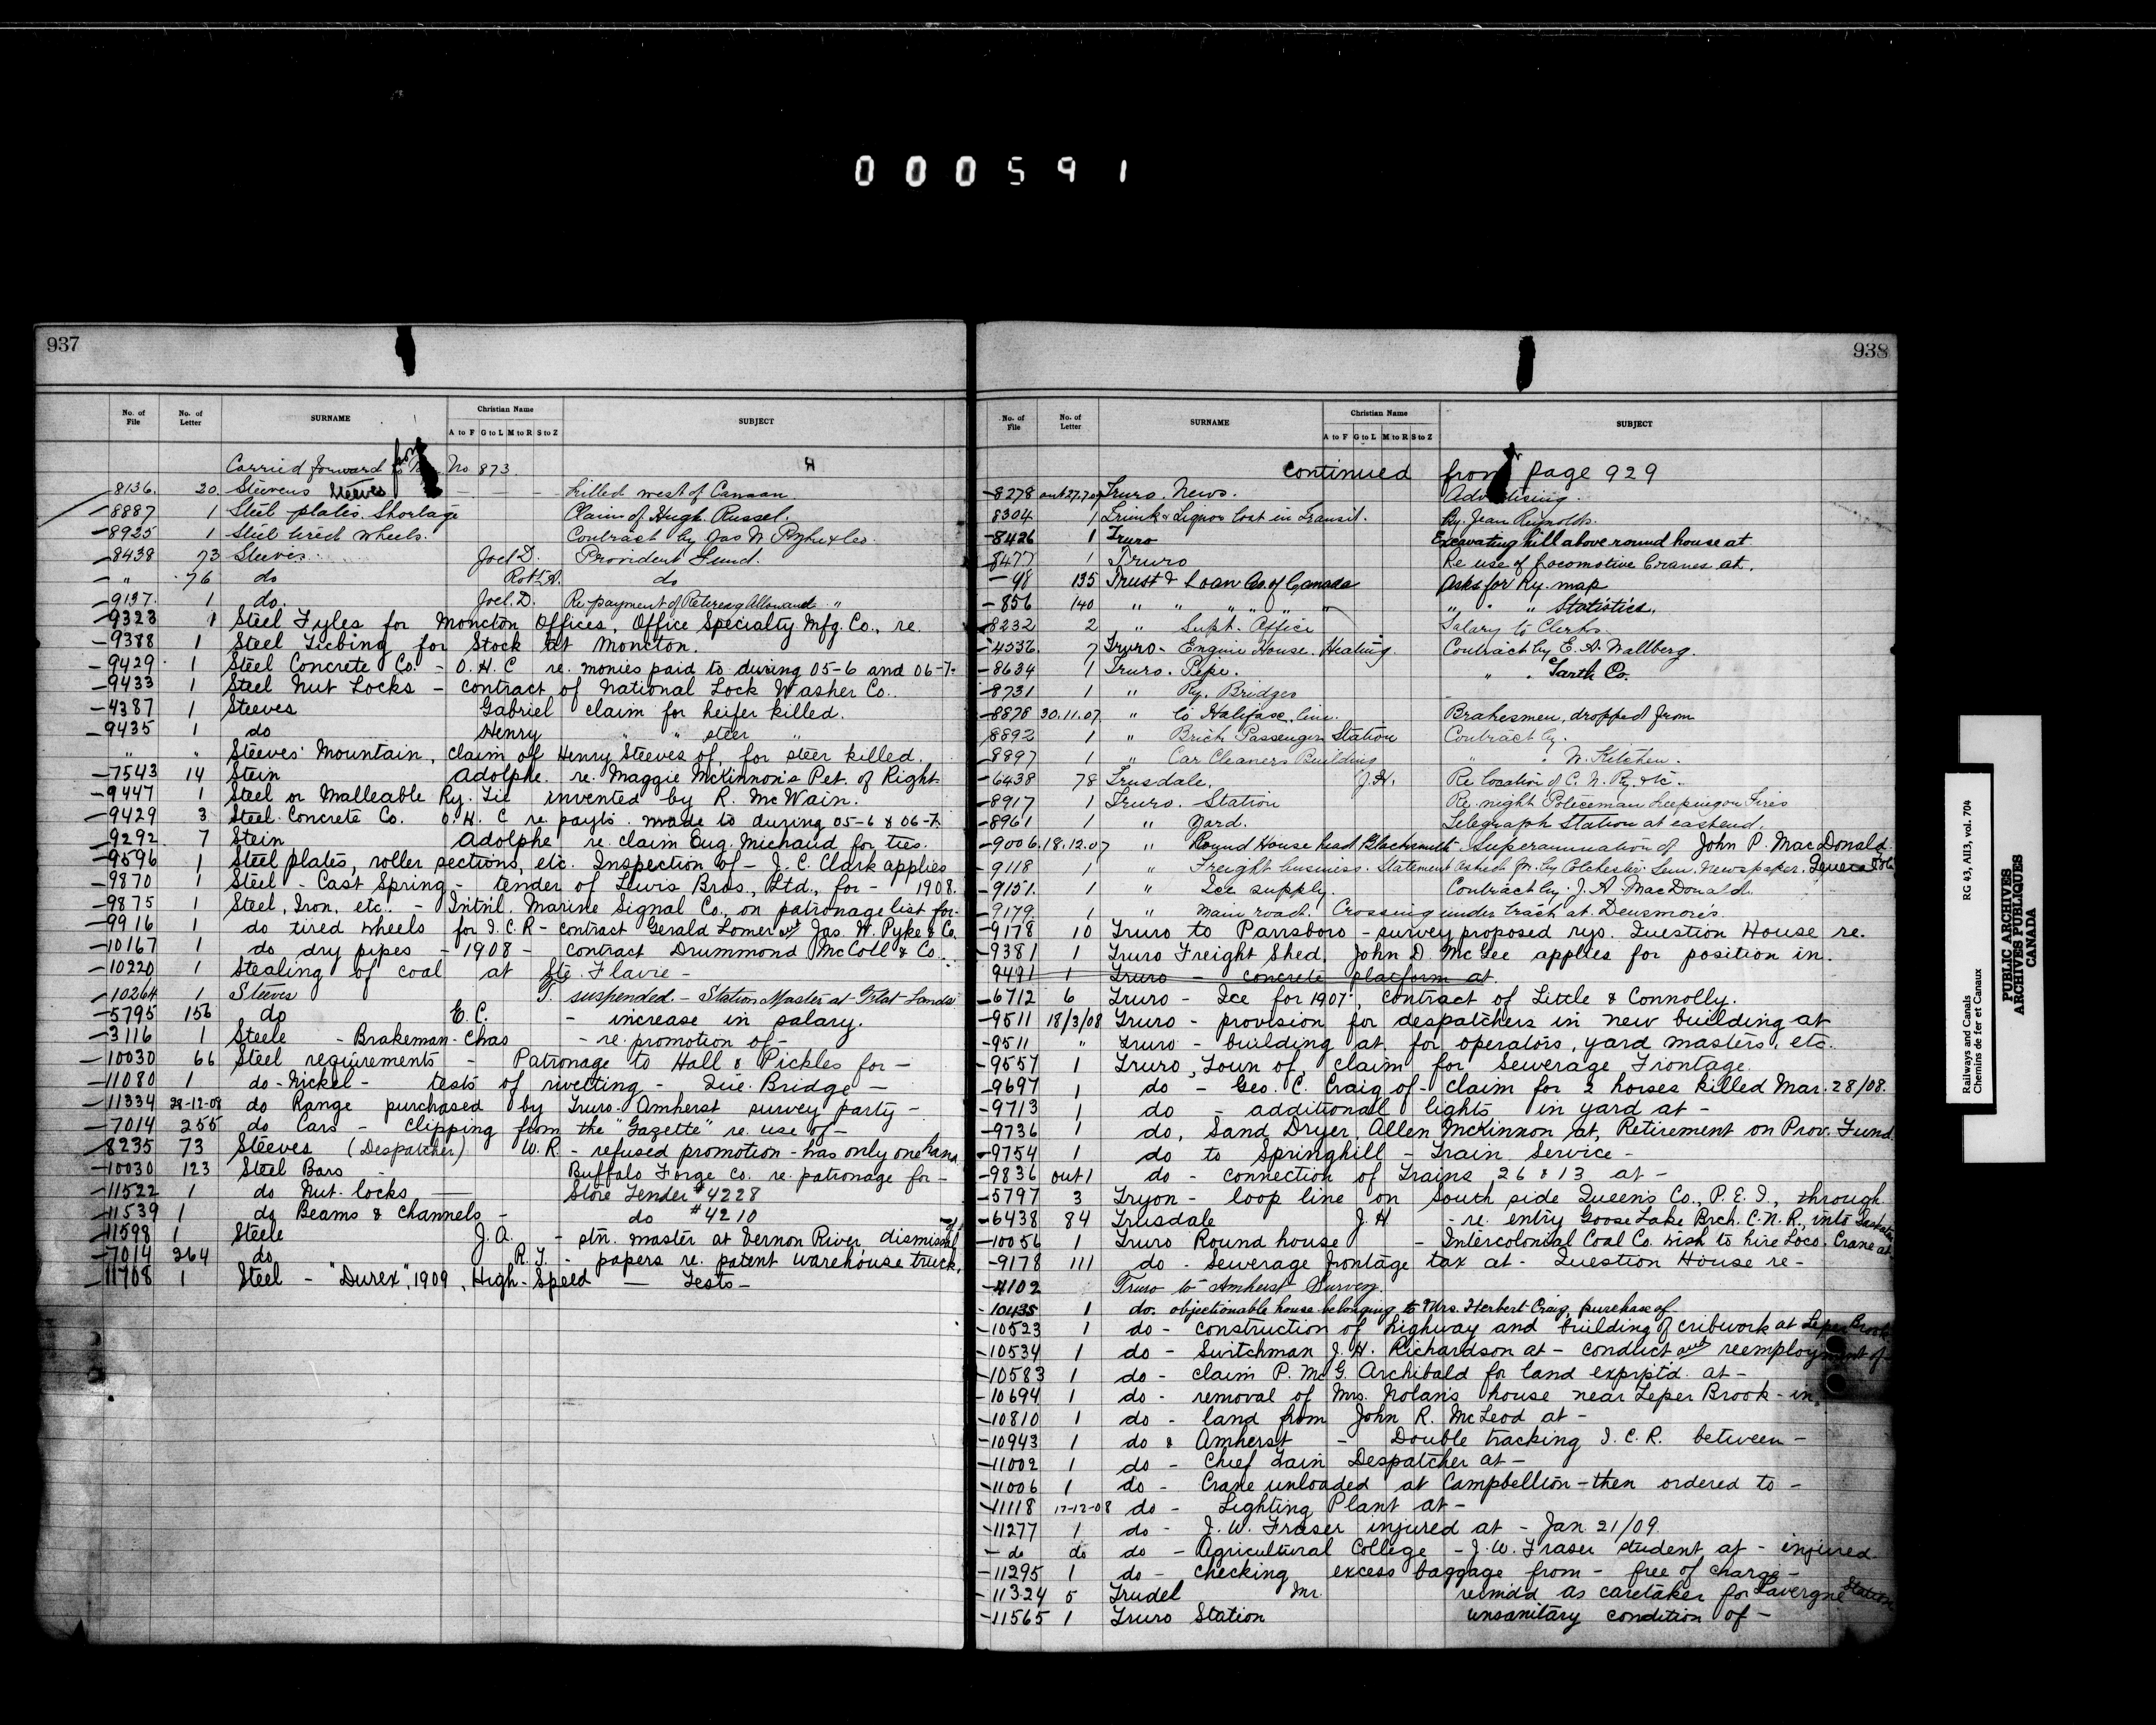 000591
937
No. of File No. of Letter SURNAME Christian Name A to F G to L M to R S to Z SUBJECT
Carried forward from No 873.
8136. 20. Steevens Steeves Killed west of Canaan
8887 1 Steel plates. Shortage Claim of Hugh Russel.
8925 1 Steel tired wheels. Contract by Jas W Pyke & Co.
8438 73 Steeves Joel D. Provident Fund.
" 76 do Robt. A. do
9137. 1 do. Joel. D. Re payment of Retiring Allowance "
9323 1 Steel Fyles for Moncton Offices, Office Specialty Mfg. Co., re.
9388 1 Steel Tiebing for Stock at Moncton.
9429 1 Steel Concrete Co. - O. H. C re. monies paid to during 05-6 and 06-7.
9433 1 Steel Nut Locks - contract of National Lock Washer Co.
4387 1 Steeves Gabriel claim for heifer killed.
9435 1 do Henry " " steer "
" " Steeves' Mountain, claim of Henry Steeves of, for steer killed.
7543 14 Stein Adolphe. re. Maggie McKinnon's Pet. of Right
9447 1 Steel or Malleable Ry. Tie invented by R. McWain.
9429 3 Steel Concrete Co. O. H. C re. payts. made to during 05-6 & 06-7.
9292 7 Stein Adolphe re. claim Eug. Michaud for ties.
9596 1 Steel plates, roller sections, etc. Inspection of - J. C. Clark applies
9870 1 Steel - Cast Spring - tender of Lewis Bros., Ltd., for - 1908.
9875 1 Steel, Iron, etc. - Intnl. Marine Signal Co., on patronage list for-
9916 1 do tired wheels for I.C.R - contract Gerald Lomer and Jas. W. Pyke & Co.
10167 1 do dry pipes - 1908 - contract Drummond McColl & Co.
10220 1 Stealing of coal at Ste. Flavie -
10264 1 Steeves T. suspended - Station Master at Flat Lands
5795 156 do E. C. - increase in salary.
3116 1 Steele - Brakeman - Chas - re. promotion of -
10030 66 Steel requirements - Patronage to Hall & Pickles for -
11080 1 do - Nickel - tests of rivetting - Que. Bridge -
11334 28-12-08 do Range purchased by Truro-Amherst survey party -
7014 255 do Cars - clipping from the "Gazette" re. use of -
8235 73 Steeves (Despatcher) W. R. - refused promotion - has only one hand
10030 123 Steel Bars - Buffalo Forge Co. re. patronage for -
11522 1 do Nut-locks Store Tender #4228
11539 1 do Beams & Channels - do #4210
11598 1 Steele J. A. - stn. master at Vernon River dismissal of
7014 264 do R. T. - papers re. patent warehouse truck.
11708 1 Steel - "Durex", 1909, High-Speed - Tests -
938
No. of File No. of Letter SURNAME Christian Name A to F G to L M to R S to Z SUBJECT
continued from page 929
8278 out 27.7.07 Truro. News. Advertising.
8304 1 Trunk & Liquor lost in Transit. By. Jean Reynolds.
8426 1 Truro Excavating hill above round house at
8477 1 Truro Re use of Locomotive Cranes at.
98 135 Trust & Loan Co. of Canada Asks for Ry. map
856 140 " " " " " " " " Statistics.
8232 2 " Supt. Office Salary to Clerks.
4536 7 Truro - Engine House. Heating Contract by E. A. Wallberg.
8634 1 Truro. Pipe. " " Garth Co.
8731 1 " Ry. Bridges
8878 30.11.07 " to Halifax line. Brakesmen, dropped from
8892 1 " Brick Passenger Station Contract by.
8897 1 " Car Cleaners Building " " W. Kitchen.
6438 78 Trusdale. J. H. Re location of C. N. Ry. etc.
8917 1 Truro. Station Re night Policeman keeping on Fires
8961 1 " Yard. Telegraph Station at east end.
9006 18.12.07 " Round House head Blacksmith - Superannuation of John P. MacDonald.
9118 1 " Freight business. Statement asked for by Colchester Sun Newspaper.
9151. 1 " Ice supply. Contract by J. A. MacDonald.
9179 1 " Main road. Crossing under track at Densmore's.
9178 10 Truro to Parrsboro - survey proposed rys. Question House re.
9381 1 Truro Freight Shed, John D. McGee applies for position in.
9491 1 Truro - concrete platform at
6712 6 Truro - Ice for 1907, contract of Little & Connolly.
9511 18/3/08 Truro - provision for despatchers in new building at
9511 " Truro - building at for operators, yard masters, etc.
9557 1 Truro, Town of, claim for Sewerage Frontage.
9697 1 do - Geo. C. Craig of - claim for 2 horses killed Mar. 28/08.
9713 1 do - additional lights in yard at -
9736 1 do, Sand Dryer, Allen McKinnon at, Retirement on Prov. Fund
9754 1 do to Springhill - Train Service -
9836 out 1 do - connection of Trains 26 & 13 at -
5797 3 Tryon - loop line on South side Queen's Co., P. E. I., through
6438 84 Trusdale J. H - re. entry Goose Lake Brch. C.N.R., into Saskatoon
10056 1 Truro Round house - Intercolonial Coal Co. wish to hire Loco. Crane at
9178 111 do - Sewerage frontage tax at - Question House re -
4102 Truro to Amherst Survey.
10435 1 do. objectionable house belonging to Mrs. Herbert Craig, purchase of
10523 1 do - construction of highway and building of cribwork at Leper Brook
10534 1 do - Switchman J. H. Richardson at - conduct and reemployment of -
10583 1 do - claim P. McG. Archibald for land exprptd. at -
10694 1 do - removal of Mrs. Nolan's house near Leper Brook - in.
10810 1 do - land from John R. McLeod at -
10943 1 do & Amherst - Double tracking I. C. R. between -
11002 1 do - Chief Tain Despatcher at -
11006 1 do - Crane unloaded at Campbellton - then ordered to -
11118 17-12-08 do - Lighting Plant at -
11277 1 do - J. W. Fraser injured at - Jan. 21/09.
do do do - Agricultural College - J. W. Fraser student at - injured
11295 1 do - checking excess baggage from - free of charge -
11324 5 Trudel Mr. remdd as caretaker for Lavergne Station
11565 1 Truro Station unsanitary condition of -
Railways and Canals RG 43, AII3, vol. 704
Chemins de fer et Canaux
PUBLIC ARCHIVES
ARCHIVES PUBLIQUES
CANADA